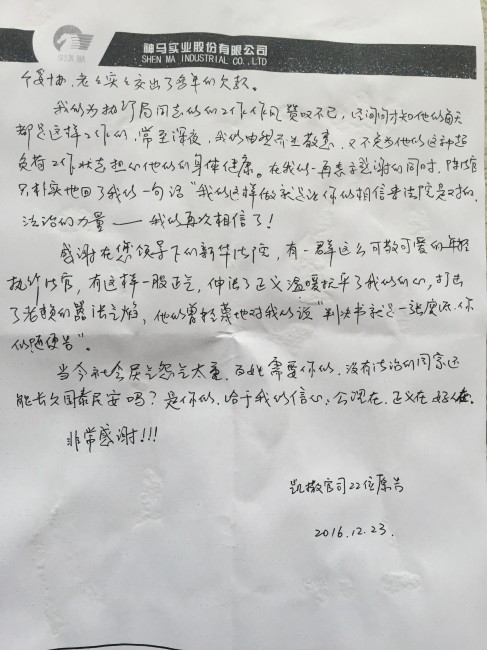 神马实业股份有限公司
SHEN MA INDUSTRIAL CO.,LTD
SHEN MA
老老实实交出了多年的欠款。
我们为执行局同志们的工作作风赞叹不已，他们每天
都是这样工作的，常至深夜，我们由然而生敬意，又不免为他们这种超
负荷工作状态担心他们的身体健康。在我们一再表示感谢的同时，陈法官
只朴实地回了我们一句话“我们这样做就是让你们相信寻法院是对的，
法治的力量——我们再次相信了！
感谢在您领导下的新华法院，有一群这么可敬可爱的年轻
执行法官，有这样一股正气，伸张了正义温暖抚平了我们的心，打击
了老赖的嚣张气焰，他们曾轻蔑地对我们说“判决书就是一张废纸，你
们随便告”
当今社会戾气怨气太重，百姓需要你们，没有法治的国家还
能长久国泰民安吗？是你们，给于我们信心，公理在，正义在，好
非常感谢!!!
凯撒官司22位原告
2016.12.23.